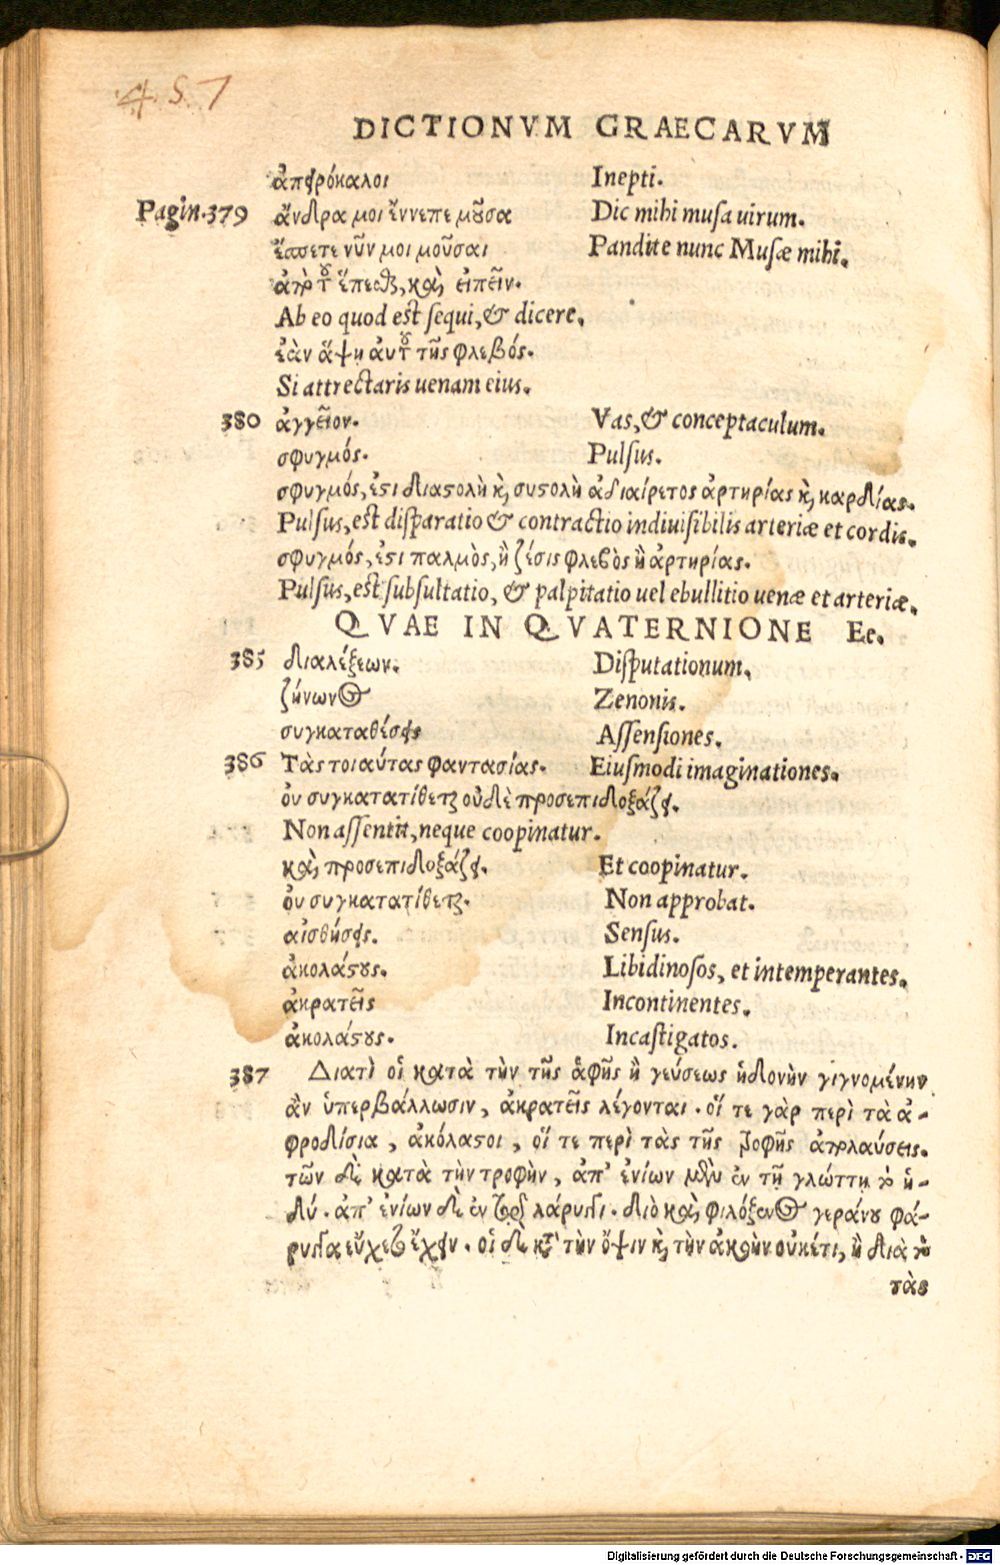 4 S 7
DICTIONVM GRAECARVM
ἀπειρόκαλοι Inepti.
Pagin.379 ἄνδρα μοι ἔννεπε μοῦσα Dic mihi musa uirum.
ἔσσετε νῦν μοι μοῦσαι Pandite nunc Musæ mihi.
ἀπὸ τοῦ ἕπεσθαι, καὶ εἰπεῖν.
Ab eo quod est sequi, & dicere.
ἐὰν ἅψῃ αὐτοῦ τῆς φλεβός.
Si attrectaris uenam eius.
380 ἀγγεῖον. Vas, & conceptaculum.
σφυγμός. Pulsus.
σφυγμός, ἐστι διαστολὴ κỳ συστολὴ ἀδιαίρετος ἀρτηρίας κỳ καρδίας.
Pulsus, est disparatio & contractio indiuisibilis arteriæ et cordis.
σφυγμός, ἐστι παλμὸς, ἢ ζέσις φλεβὸς ἢ ἀρτηρίας.
Pulsus, est subsultatio, & palpitatio uel ebullitio uenæ et arteriæ.
QVAE IN QVATERNIONE Ee.
385 διαλέξεων. Disputationum.
ζήνωνος Zenonis.
συγκαταθέσεις Assensiones.
386 Τὰς τοιαύτας φαντασίας. Eiusmodi imaginationes.
οὐ συγκατατίθεται οὐδὲ προσεπιδοξάζει.
Non assentit, neque coopinatur.
καὶ προσεπιδοξάζει. Et coopinatur.
οὐ συγκατατίθεται. Non approbat.
αἰσθήσεις. Sensus.
ἀκολάστους. Libidinosos, et intemperantes.
ἀκρατεῖς Incontinentes.
ἀκολάστους. Incastigatos.
387 Διατὶ οἱ κατὰ τὴν τῆς ἁφῆς ἢ γεύσεως ἡδονὴν γιγνομένην
ἂν ὑπερβάλλωσιν, ἀκρατεῖς λέγονται. οἵ τε γὰρ περὶ τὰ ἀ-
φροδίσια, ἀκόλαστοι, οἵ τε περὶ τὰς τῆς τροφῆς ἀπολαύσεις.
τῶν δὲ κατὰ τὴν τροφὴν, ἀπ' ἐνίων μὲν ἐν τῇ γλώττῃ τὸ ἡ-
δύ. ἀπ' ἐνίων δὲ ἐν τῷ λάρυγγι. διὸ καὶ φιλόξενος γεράνου φά-
ρυγγα εὔχετο ἔχειν. οἱ δὲ κατὰ τὴν ὄψιν κỳ τὴν ἀκοὴν οὐκέτι, ἢ διὰ τὸ
τὰς
Digitalisierung gefördert durch die Deutsche Forschungsgemeinschaft - DFG